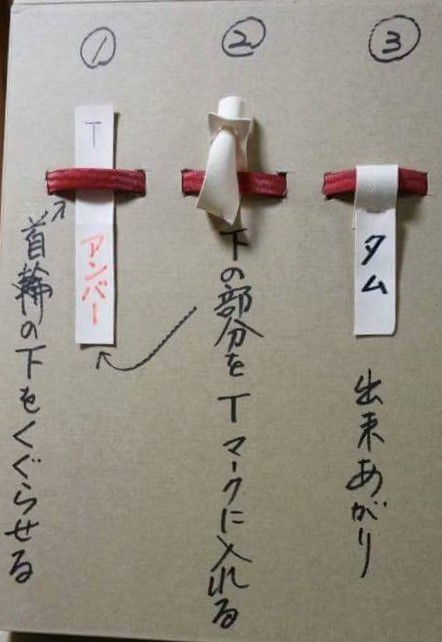 ①
T
アンバー
首輪の下をくぐらせる
②
下の部分をTマークに入れる
③
タム
出来あがり